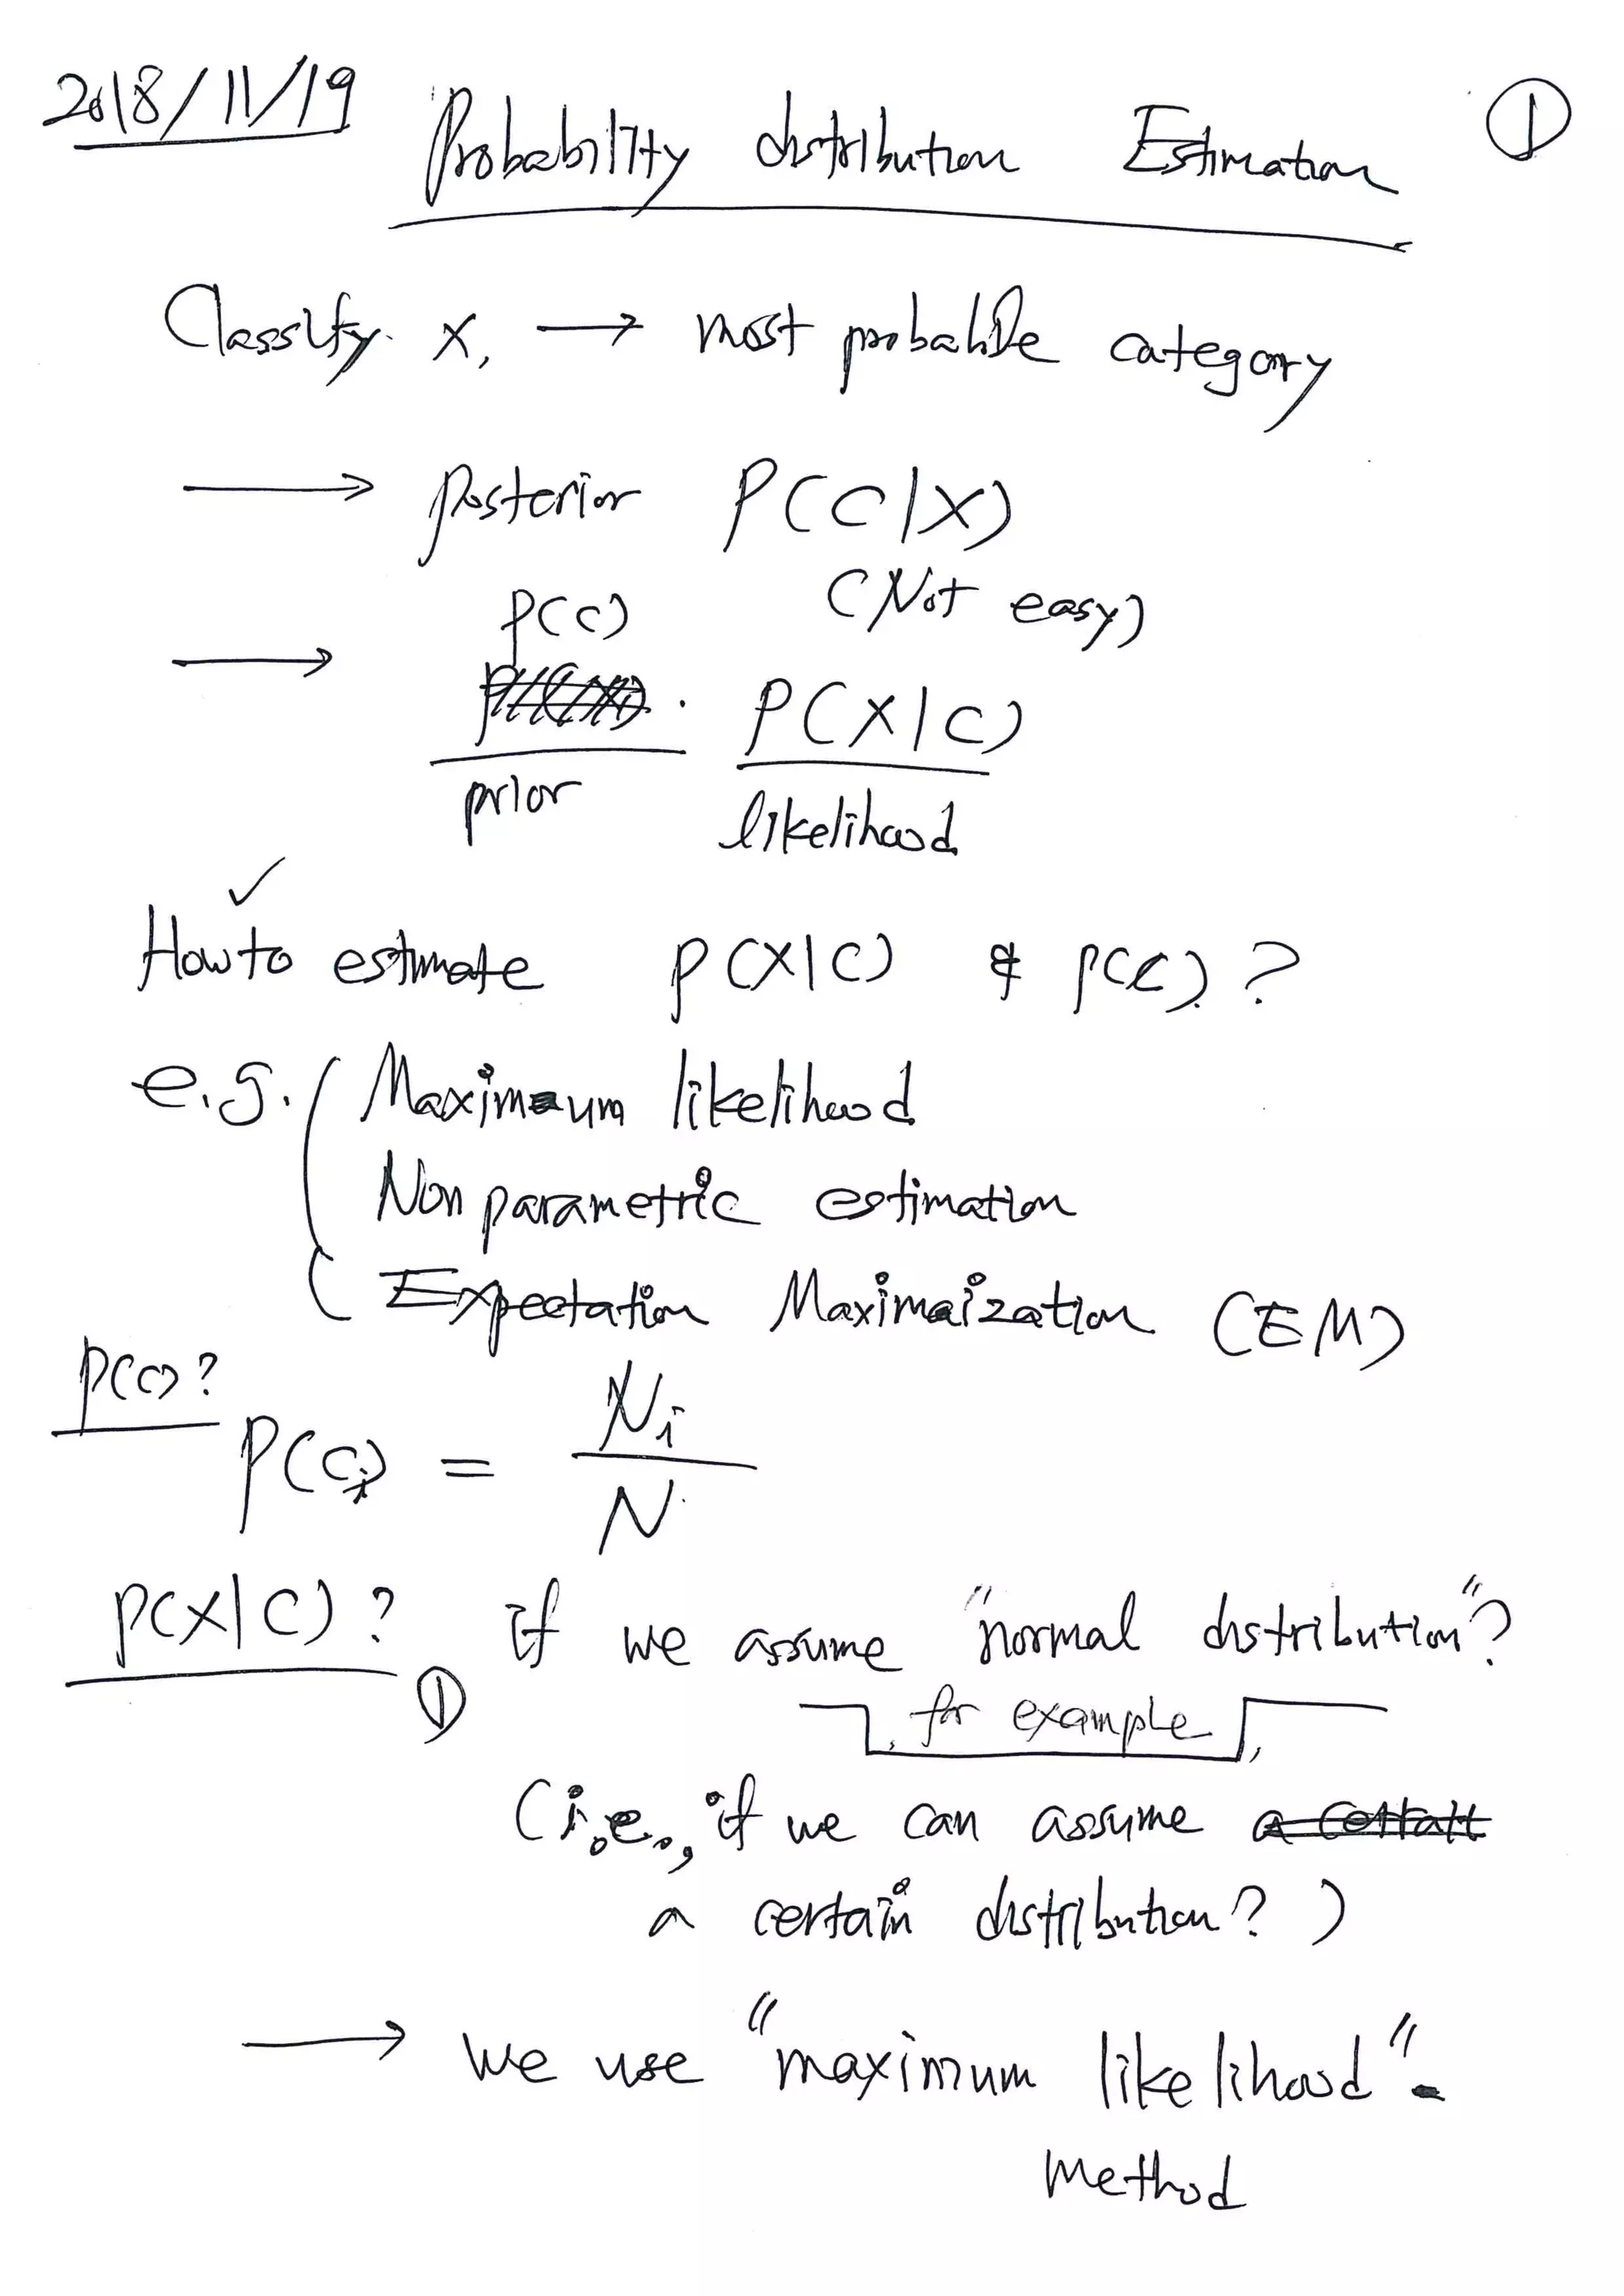 2018/11/19 Probability distribution Estimation ①
Classify x, → most probable category
→ posterior P(C|X)
(Not easy)
→ P(C) · P(X|C)
prior likelihood
✓
How to estimate P(X|C) & P(C)?
e.g. Maximum likelihood
Non parametric estimation
Expectation Maximaization (EM)
P(C)?
P(Ci) = Ni / N
P(X|C)? ① if we assume "normal distribution"?
, for example,
(i.e., if we can assume
a certain distribution?)
→ we use "maximum likelihood"-
Method